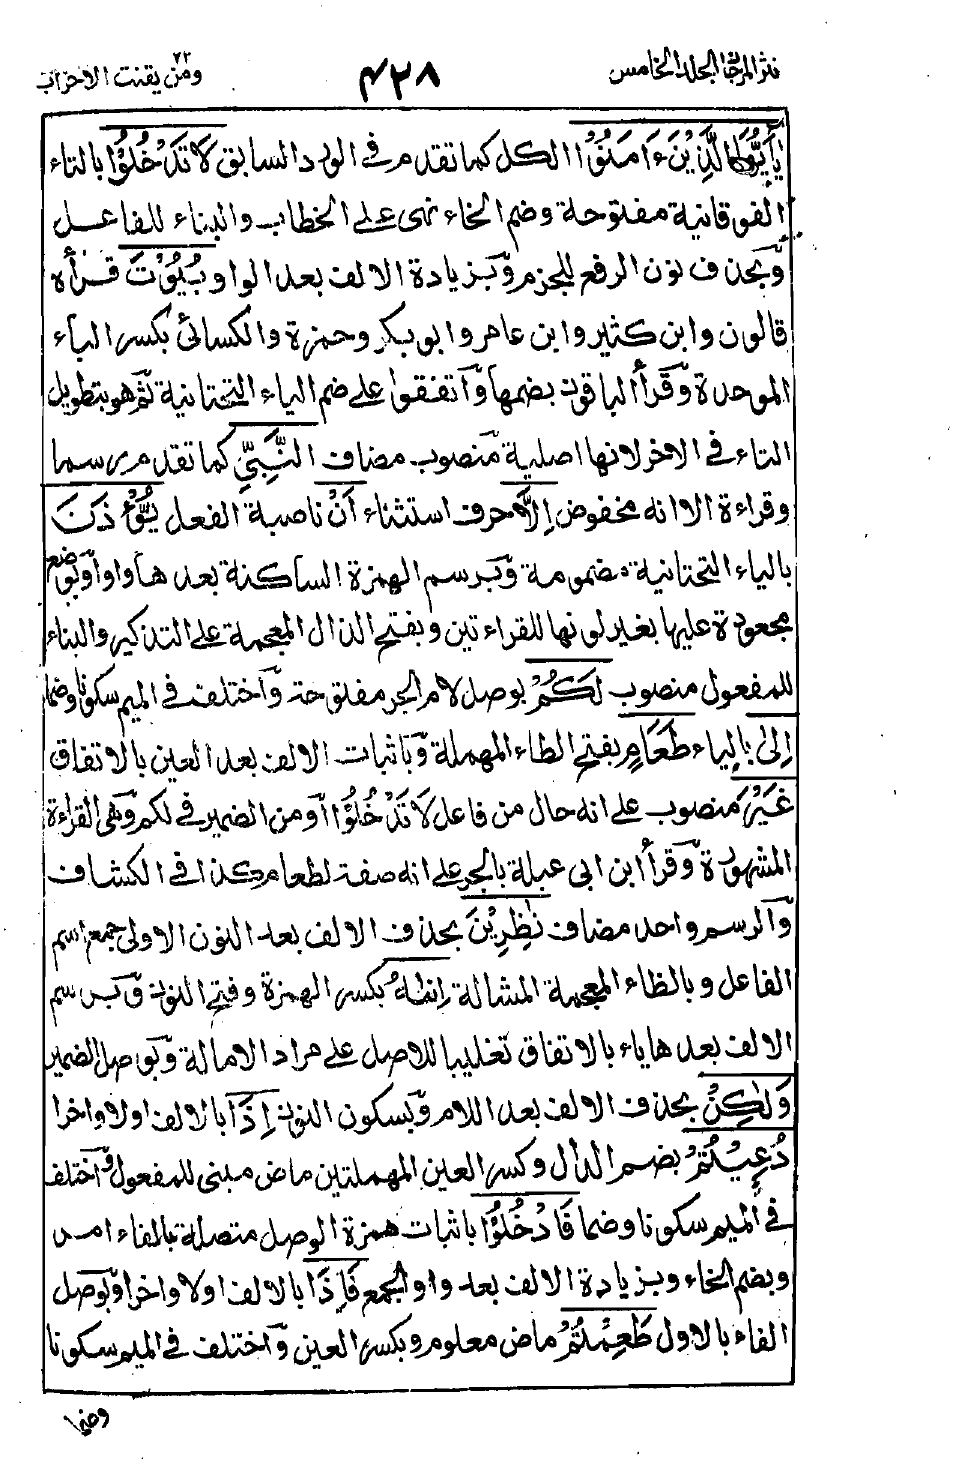 نثر المرجان الجلد الخامس
٤٢٨
ومن يقنت ٢٢ الاحزاب
يٰاَيُّهَا الَّذِيْنَ ءَامَنُوْا الكل كما تقدم في الورد السابق لَا تَدْخُلُوْا بالتاء
الفوقانية مفتوحة وضم الخاء نهى على الخطاب والبناء للفاعل
وبحذف نون الرفع للجزم وبزيادة الالف بعد الواو بُيُوْتَ قرأه
قالون وابن كثير وابن عامر وابو بكر وحمزة والكسائي بكسر الباء
الموحدة وقرأ الباقون بضمها واتفقوا على ضم الياء التحتانية ثم هو بتطويل
التاء في الاخر لانها اصلية منصوب مضاف النَّبِيِّ كما تقدم مر رسما
وقراءة الا انه مخفوض اِلَّا حرف استثناء اَنْ ناصبة الفعل يُّؤْذَنَ
بالياء التحتانية مضمومة وبرسم الهمزة الساكنة بعدها واوا وبوضع
مجعودة عليها بغير لونها للقراءتين وبفتح الذال المعجمة على التذكير والبناء
للمفعول منصوب لَكُمْ بوصل لام الجر مفتوحة واختلف في الميم سكونا وضما
اِلٰى بالياء طَعَامٍ بفتح الطاء المهملة وباثبات الالف بعد العين بالاتفاق
غَيْرَ منصوب على انه حال من فاعل لَا تَدْخُلُوْا او من الضمير في لكم وهي القراءة
المشهورة وقرأ ابن ابي عبلة بالجر على انه صفة لطعام كذا في الكشاف
والرسم واحد مضاف نٰظِرِيْنَ بحذف الالف بعد النون الاولى جمع اسم
الفاعل وبالظاء المعجمة المشالة اِنٰىهُ بكسر الهمزة وفتح النون وبرسم
الالف بعدها ياء بالاتفاق تغليبا للاصل على مراد الامالة وبوصل الضمير
وَلٰكِنْ بحذف الالف بعد اللام وبسكون النون اِذَا بالالف اولا واخرا
دُعِيْتُمْ بضم الدال وكسر العين المهملتين ماض مبنى للمفعول واختلف
في الميم سكونا وضما فَادْخُلُوْا باثبات همزة الوصل متصلة بالفاء امر
وبضم الخاء وبزيادة الالف بعد واو الجمع فَاِذَا بالالف اولا واخرا وبوصل
الفاء بالاول طَعِمْتُمْ ماض معلوم وبكسر العين واختلف في الميم سكونا
وضما